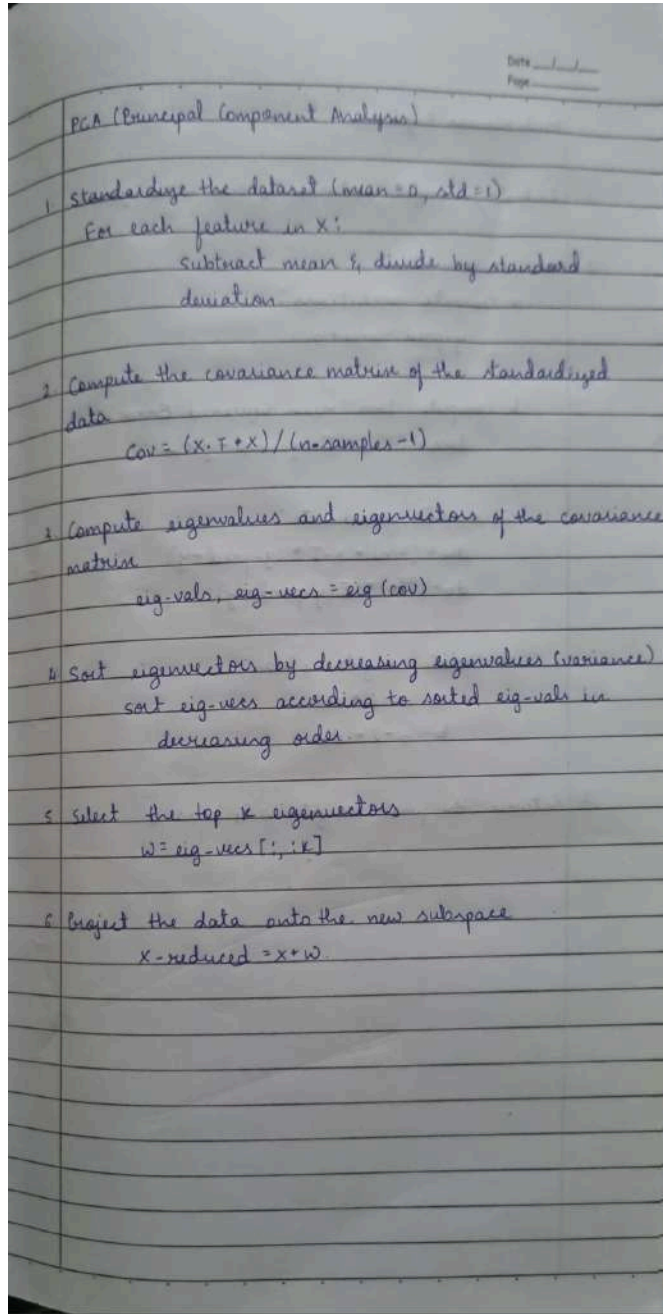 Date __/__/__
Page
PCA (Principal Component Analysis)
1 Standardize the dataset (mean = 0, std = 1)
For each feature in X:
subtract mean & divide by standard
deviation
2 Compute the covariance matrix of the standardized
data
Cov = (X.T * X) / (n-samples - 1)
3 Compute eigenvalues and eigenvectors of the covariance
matrix
eig-vals, eig-vecs = eig (cov)
4 Sort eigenvectors by decreasing eigenvalues (variance)
sort eig-vecs according to sorted eig-vals in
decreasing order.
5 Select the top K eigenvectors
W = eig-vecs [:, :K]
6 Project the data onto the new subspace
X-reduced = X * W